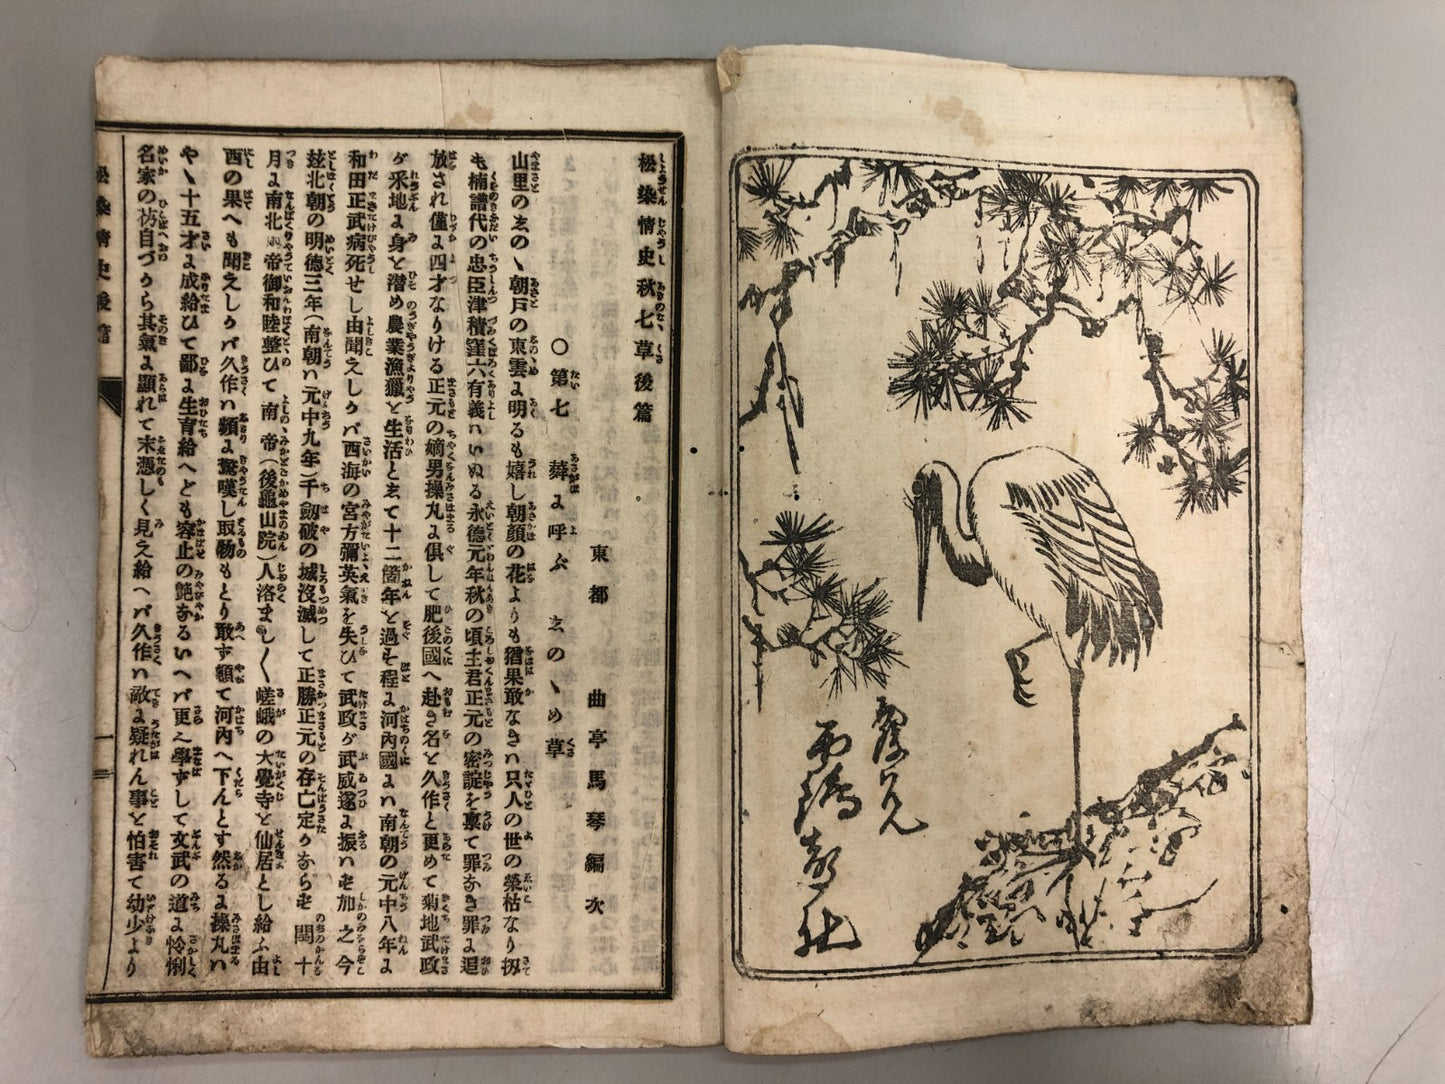 松染情史秋七草後篇
東都 曲亭馬琴編次
○第七 蕣よ呼ぶ ゑのゝめ草
山里のゑのゝ朝戸の東雲よ明るも嬉し朝顔の花よりも猶果敢なきハ只人の世の榮枯なり扨
も楠譜代の忠臣津積窪六有義ハいぬる永德元年秋の頃主君正元の密諚を稟て罪なき罪よ退
放され僅よ四才なりける正元の嫡男操丸よ俱して肥後國へ赴き名と久作と更めて菊地武政
が釆地よ身と潜め農業漁獵と生活とゑて十二箇年と過も程よ河內國よハ南朝の元中八年よ
和田正武病死せし由聞えしうバ西海の宮方彌英氣を失ひて武政が武威遂よ振ハも加之今
玆北朝の明德三年(南朝ハ元中九年)千劔破の城沒滅して正勝正元の存亡定うならも閏十
月よ南北帝御和睦整ひて南帝(後龜山院)人洛まし〱嵯峨の大覺寺と仙居とし給ふ由
西の果へも聞えしうバ久作ハ頻よ驚嘆し取物もとり敢ず頓て河內へ下んとす然るよ操丸ハ
やゝ十五才よ成給ひて鄙よ生育給へども容止の艶なるいへバ更よ學ずして文武の道よ怜悧
名家の祊自づうら其氣よ顯れて末憑しく見え給へバ久作ハ敵よ疑れん事と怕害て幼少より
松染情史後篇
一